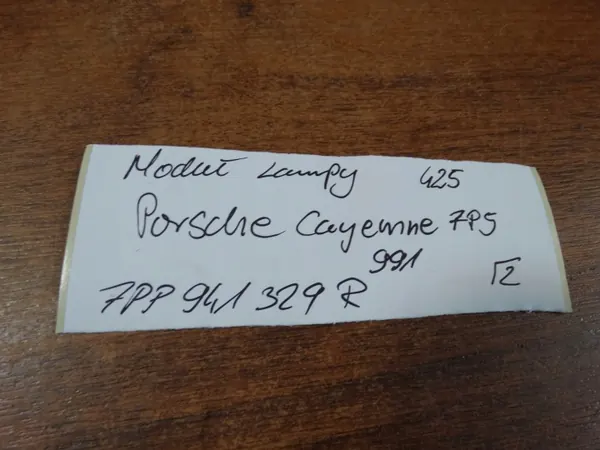 Moduł Lampy 425
Porsche Cayenne 7P5
991
7PP 941 329 R
Γ2